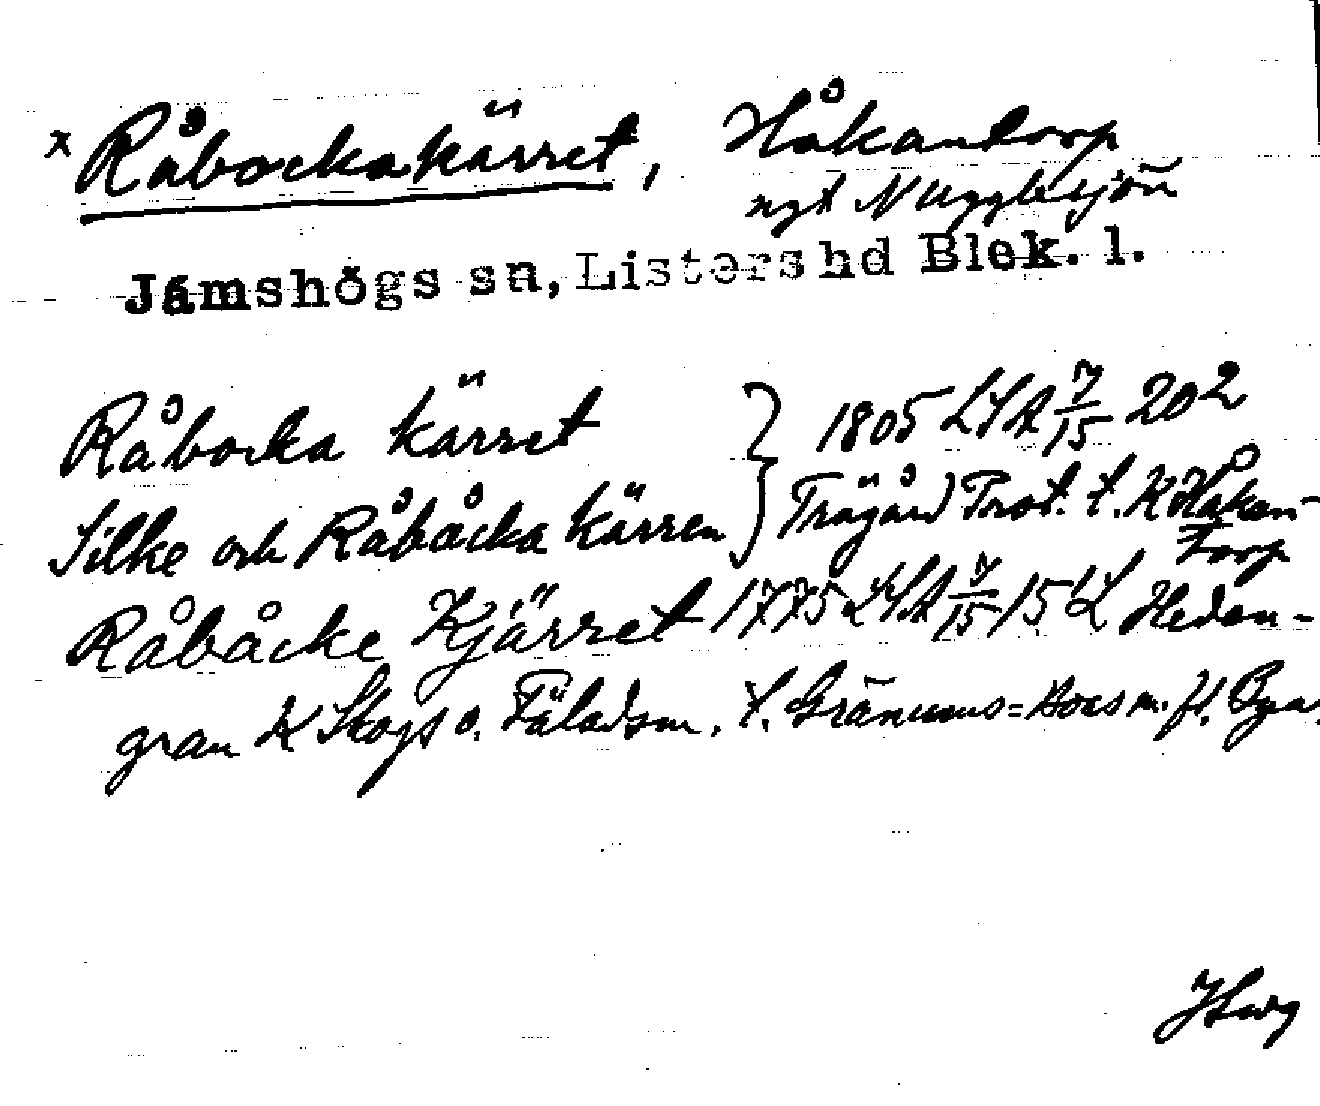 x Råbockakärret, Håkantorp
nyt Nugglesjön
Jämshögs sn, Listers hd Blek. l.
Råbocka kärret } 1805 LSA 7/15 202
Silke och Råbåcka kärren } Trägård Prot. t. K Håkan-
torp
Råbåcke Kjärret 1775 LSA 7/15 15 L Heden-
gran K Skogs o. Fäladsm. t. Gränums= Boas m. fl. Byar